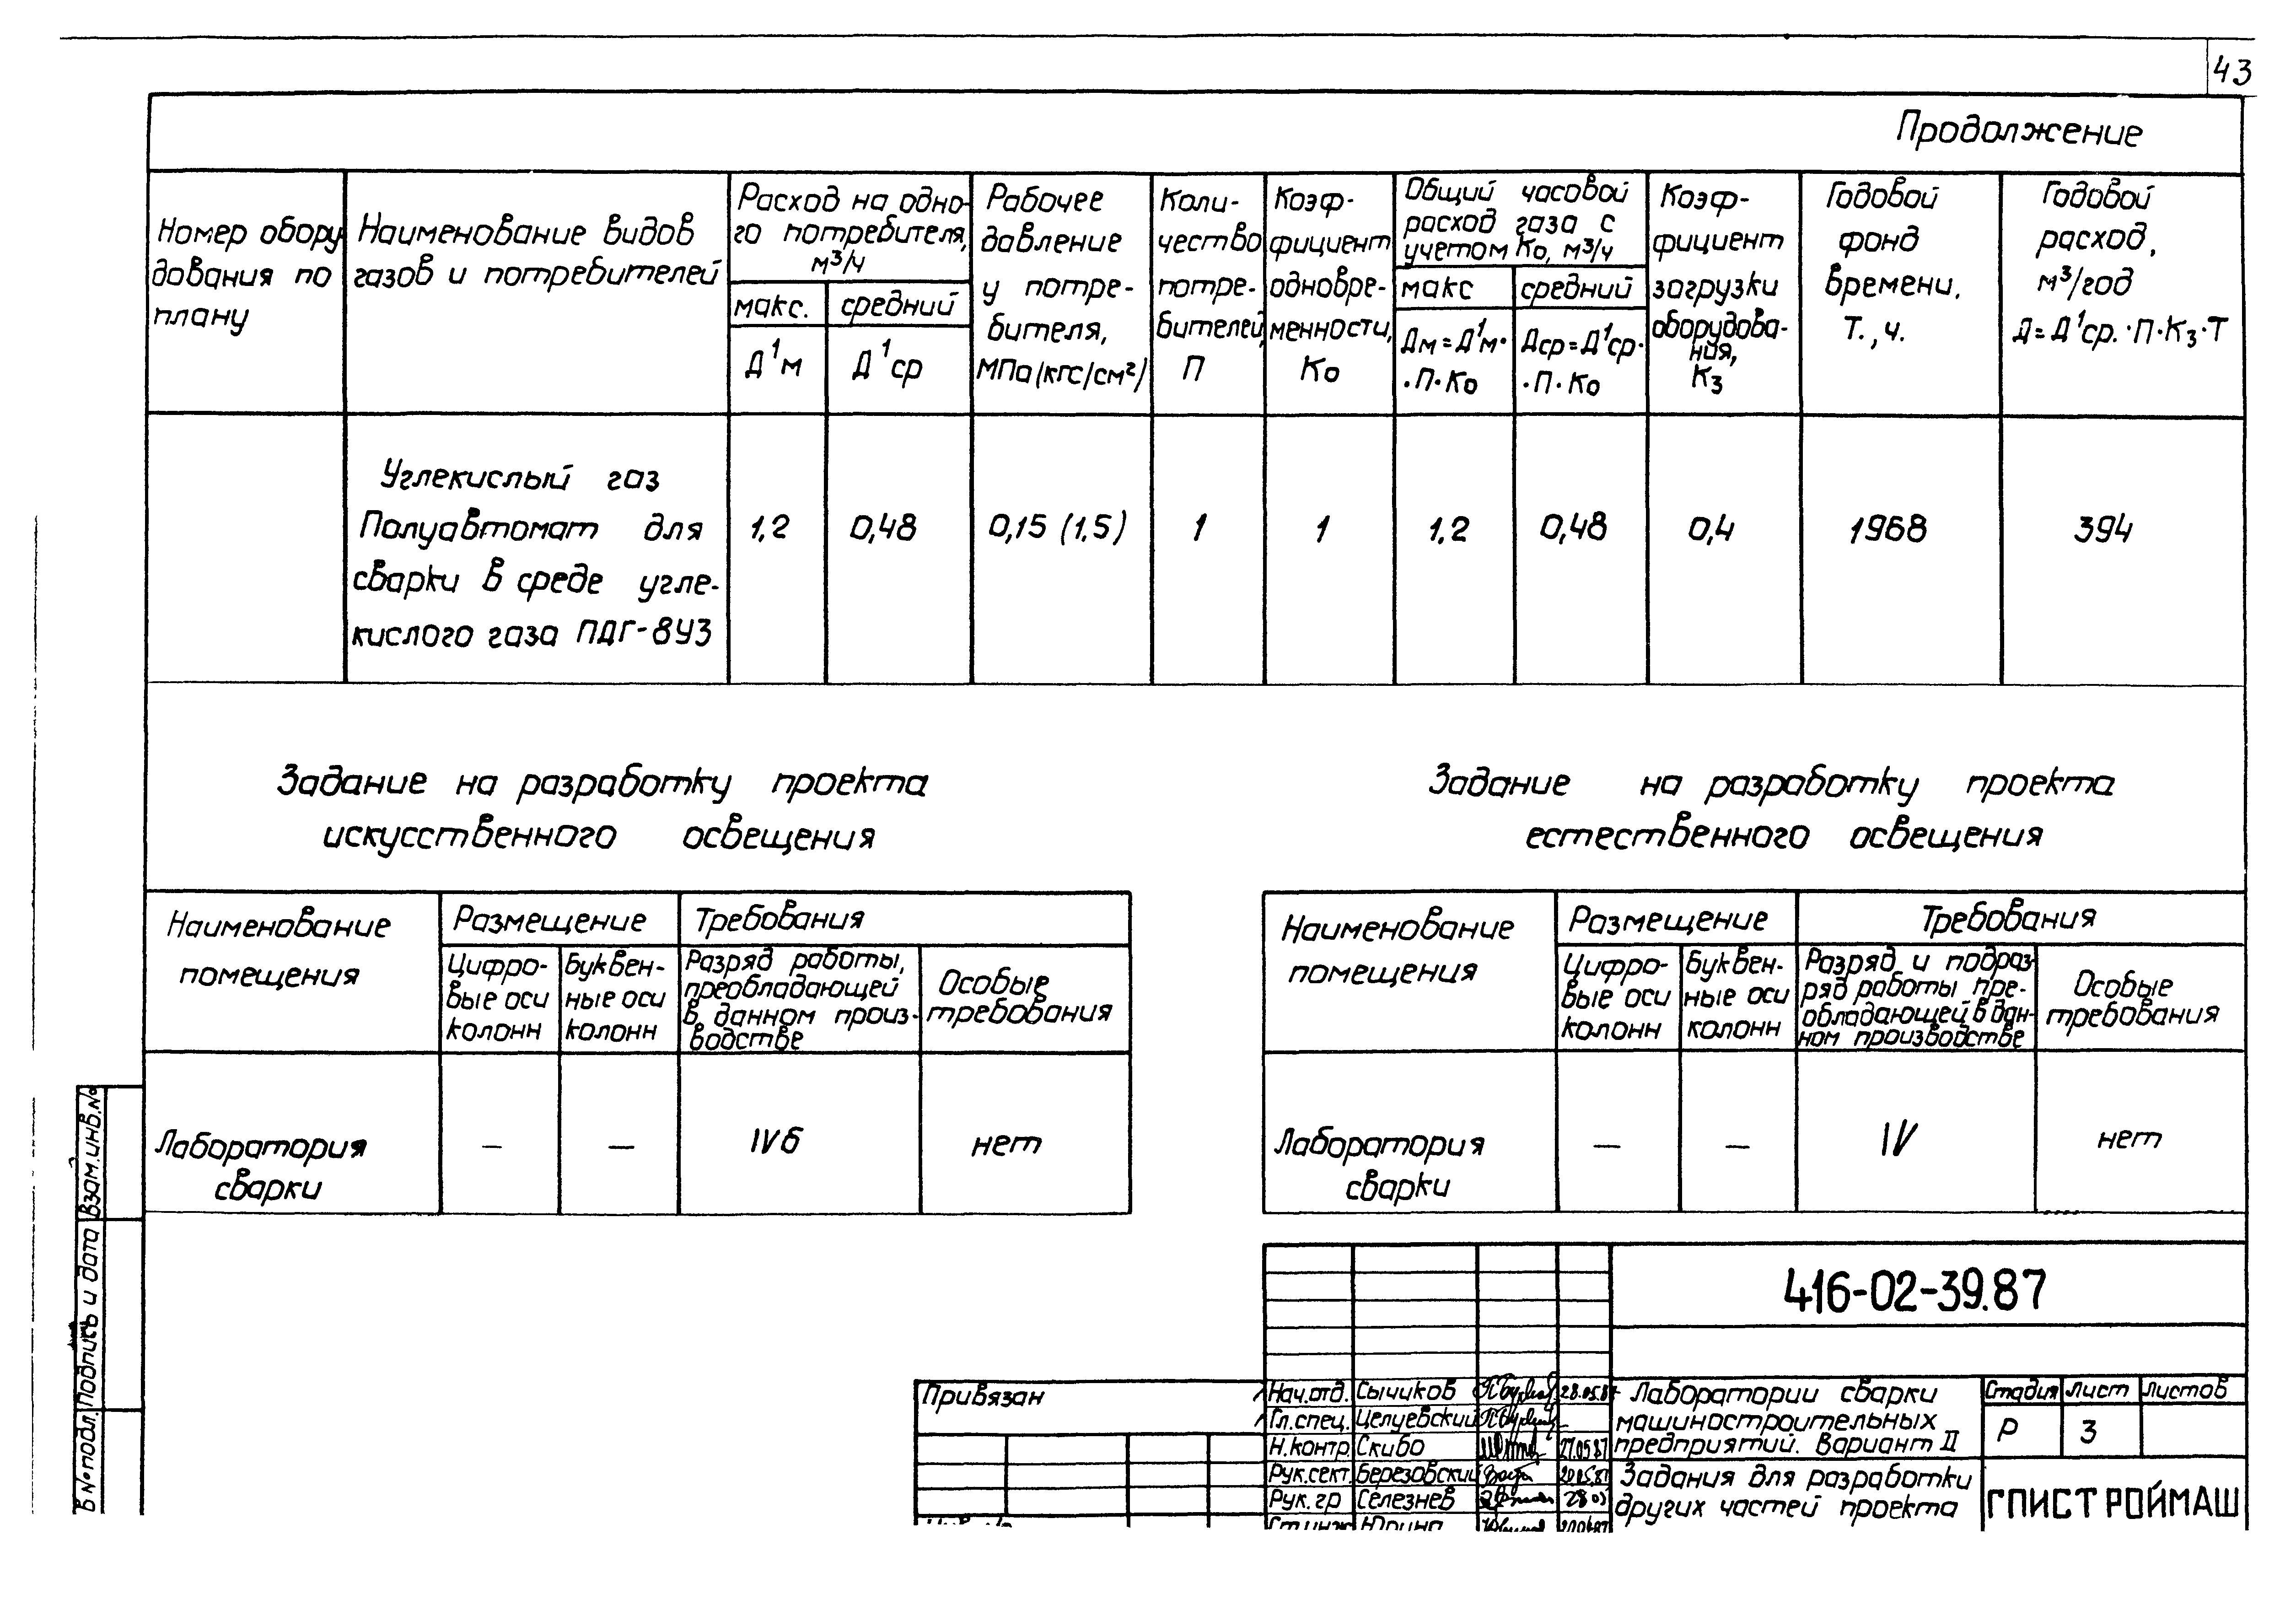 43
Продолжение
Номер обору
дования по
плану
Наименование видов
газов и потребителей
Расход на одно-
го потребителя,
м³/ч
макс.
средний
Д¹м
Д¹ср
Рабочее
давление
у потре-
бителя,
МПа (кгс/см²)
Коли-
чество
потре-
бителей,
П
Коэф-
фициент
одновре-
менности,
Ко
Общий часовой
расход газа с
учетом Ко, м³/ч
макс
средний
Дм=Д¹м·
·П·Ко
Дср=Д¹ср·
·П·Ко
Коэф-
фициент
загрузки
оборудова-
ния,
Кз
Годовой
фонд
времени,
Т., ч.
Годовой
расход,
м³/год
Д=Д¹ср.·П·Кз·Т
Углекислый газ
Полуавтомат для
сварки в среде угле-
кислого газа ПДГ-8У3
1,2
0,48
0,15 (1,5)
1
1
1,2
0,48
0,4
1968
394
Задание на разработку проекта
искусственного освещения
Наименование
помещения
Размещение
Требования
Цифро-
вые оси
колонн
Буквен-
ные оси
колонн
Разряд работы,
преобладающей
в данном произ-
водстве
Особые
требования
Лаборатория
сварки
—
—
IVб
нет
Задание на разработку проекта
естественного освещения
Наименование
помещения
Размещение
Требования
Цифро-
вые оси
колонн
Буквен-
ные оси
колонн
Разряд и подраз-
ряд работы пре-
обладающей в дан-
ном производстве
Особые
требования
Лаборатория
сварки
—
—
IV
нет
Взам.инв.№
Подпись и дата
в № подл.
Привязан
416-02-39.87
Нач.отд. Сычиков 28.05.87
Гл.спец. Целуевский
Н.контр Скибо 27.05.87
Рук.сект. Березовский
Рук.гр Селезнев 28.05
Ст.инж Юрина
Лаборатории сварки
машиностроительных
предприятий. Вариант II
Стадия Лист Листов
Р 3
Задания для разработки
других частей проекта
ГПИСТРОЙМАШ